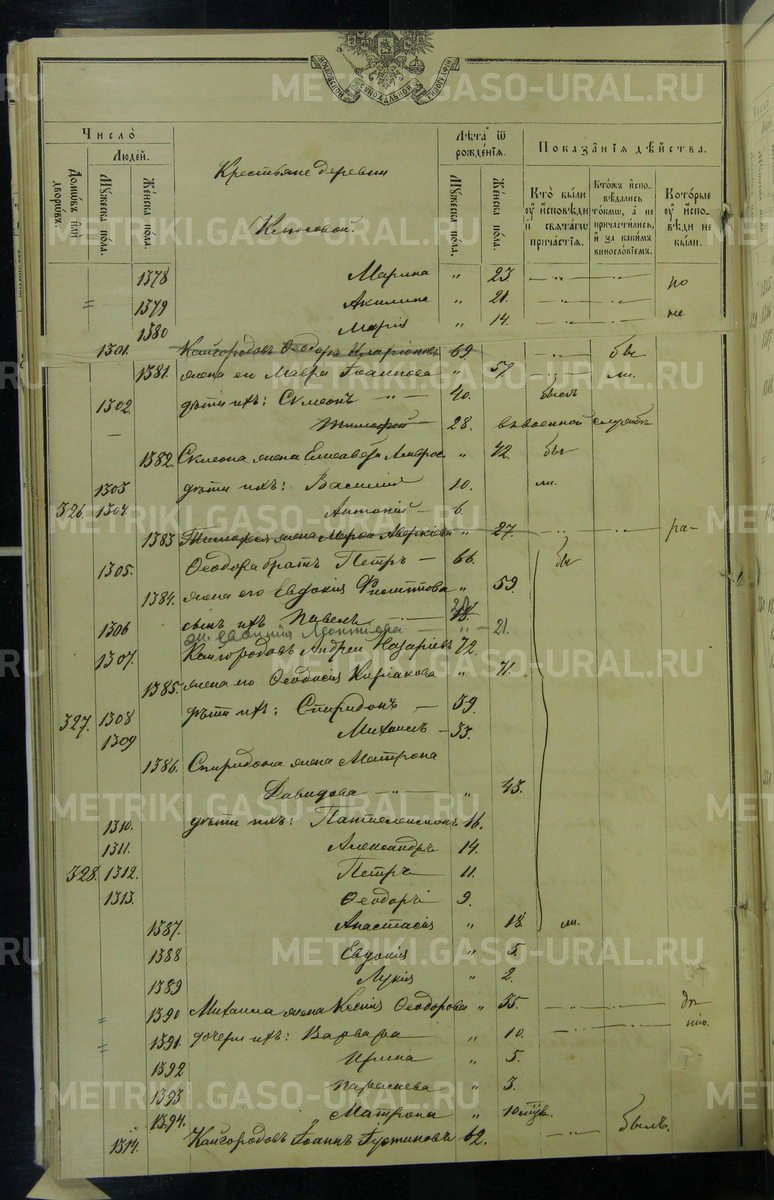 МОСКОВСКОЙ СѴНОДАЛЬНОЙ ТИПОГРАФІИ
METRIKI.GASO-URAL.RU
Число̀
Людей.
Домѡвъ или дворѡвъ.
Мꙋжеска пола.
Женска пола.
Крестьяне деревни
Ключевой.
Лѣта ѿ рожденїя.
Мꙋжеска пола.
Женска пола.
Показанїя дѣйства.
Кто были ᲂу исповѣди и святагѡ причастїя.
Ктожъ исповѣдались токмѡ, а не причастились, и за какимъ винословїемъ.
Которые ᲂу исповѣди не были.
1378 Марина " 23. — " —
1379 Акилина " 21. — " — по
1380 Марія " 14. — " — не
1301. Кайгородовъ Ѳеодоръ Иларіоновъ 69 — " — бы
1381. жена его Мавра Іоаннова " 57. — " — ли.
1302. дѣти ихъ: Симеонъ — " — 40. былъ
— Тимофей — 28. въ военной службѣ
1382. Симеона жена Елисавета " 42 бы
1303 дѣти ихъ: Василій 10. ли.
326. 1304 Антоній — 6.
1383 Тимофея жена Марѳа " 27. — " — " — ра-
1305. Ѳеодора братъ Петръ — 66. бы
1384. жена его Евдокія Филиппова " 59.
1306 сынъ ихъ Павелъ —
ж. Евдокія — " — 21.
1307. Кайгородовъ Андрей Назаріевъ 72.
1385. жена его Ѳеодосія " 71.
327. 1308 дѣти ихъ: Спиридонъ — 39.
1309 Михаилъ — 33.
1386. Спиридона жена Матрона
Давидова — " — " 43.
1310. дѣти ихъ: Пантелеимонъ 16.
1311. Александръ 14.
328. 1312. Петръ 11.
1313. Ѳеодоръ 9.
1387. Анастасія " 18 ли.
1388 Евдокія " 5.
1389 Лукія " 2.
1390 Михаила жена Ксенія Ѳеодорова " 35. — " — " —
1391. дочери ихъ: Варвара " 10. — " — " —
1392 Ирина " 5.
1393 Параскева " 3.
1394. Матрона " 10
1314. Кайгородовъ Іоаннъ Іустиновъ 62. — " — былъ.